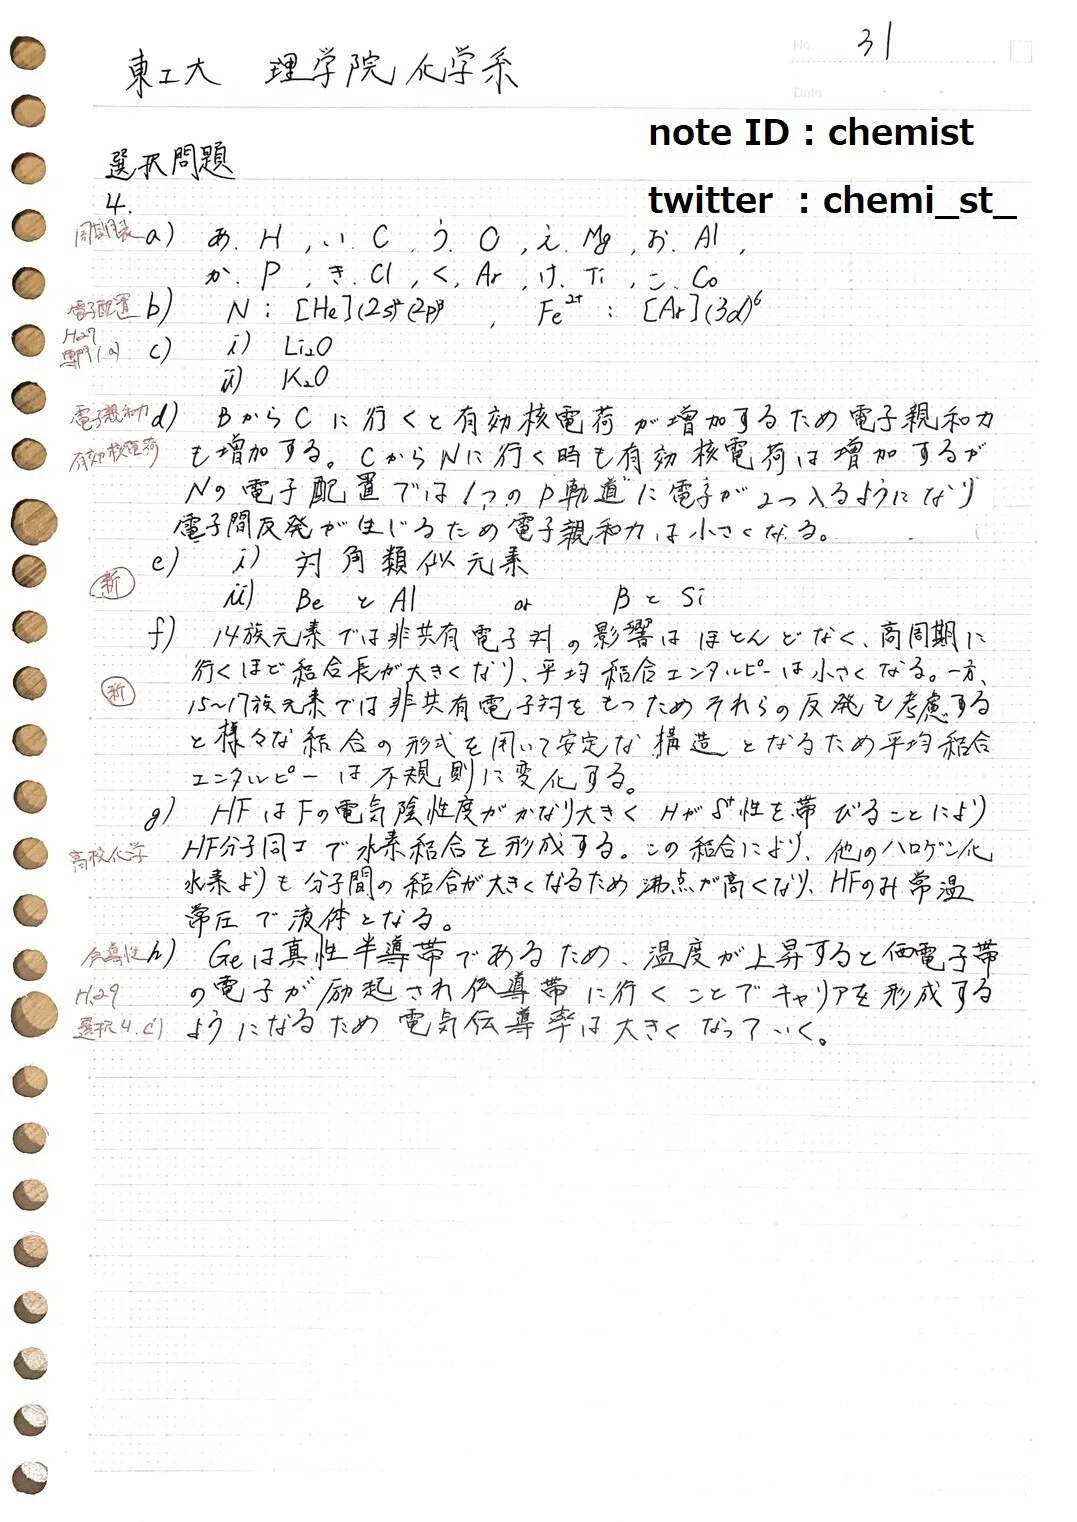 No. 31
東工大 理学院 化学系
Date
note ID : chemist
選択問題
twitter : chemi_st_
4.
周期表 a) あ. H , い. C , う. O , え. Mg , お. Al ,
か. P , き. Cl , く. Ar , け. Ti , こ. Co
電子配置 b) N : [He](2s)²(2p)³ , Fe²⁺ : [Ar](3d)⁶
H27
専門1.a) c) i) Li₂O
ii) K₂O
電子親和力 d) BからCに行くと有効核電荷が増加するため電子親和力
有効核電荷 も増加する。CからNに行く時も有効核電荷は増加するが
Nの電子配置では1つのp軌道に電子が2つ入るようになり
電子間反発が生じるため電子親和力は小さくなる。
e) i) 対角類似元素
新 ii) Be と Al or B と Si
f) 14族元素では非共有電子対の影響はほとんどなく、高周期に
行くほど結合長が大きくなり、平均結合エンタルピーは小さくなる。一方、
新 15~17族元素では非共有電子対をもつためそれらの反発も考慮する
と様々な結合の形式を用いて安定な構造となるため平均結合
エンタルピーは不規則に変化する。
g) HFはFの電気陰性度がかなり大きくHがδ⁺性を帯びることにより
高校化学 HF分子同士で水素結合を形成する。この結合により、他のハロゲン化
水素よりも分子間の結合が大きくなるため沸点が高くなり、HFのみ常温
常圧で液体となる。
h) Geは真性半導帯であるため、温度が上昇すると価電子帯
H29 の電子が励起され伝導帯に行くことでキャリアを形成する
選択4.c) ようになるため電気伝導率は大きくなっていく。